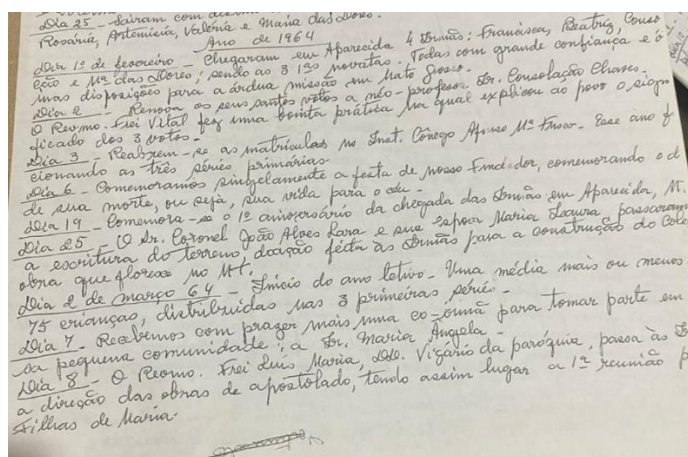 Dia 25 - Sairam com
Rosária, Artemisia, Valéria e Maria das Dores.
Ano de 1964
Dia 1º de fevereiro - Chegaram em Aparecida 4 Irmãs: Franciscas, Beatriz, Conso
ção e Mª das Dores; sendo as 3 1ªs novatas. Todas com grande confiança e ó
mas disposições para a árdua missão em Mato Grosso.
Dia 2 - Renova os seus santos votos a néo-professa Ir. Consolação Chaves.
O Revmo. Frei Vital fez uma bonita prática na qual explicou ao povo o sign
ficado dos 3 votos.-
Dia 3 - Reabrem-se as matrículas no Inst. Cônego Afonso Mª Fusco. Esse ano f
cionando as três séries primárias-
Dia 6 - Comemoramos singelamente a festa de nosso Fundador, comemorando o d
de sua morte, ou seja, sua vida para o céu.-
Dia 19 - Comemora-se o 1º aniversário da chegada das Irmãs em Aparecida, M.
Dia 25 - O Sr. Coronel João Alves Lara e sua esposa Maria Laura, passaram
a escritura do terreno, doação feita às Irmãs para a construção do Colé
obra que floresce no Mt.
Dia 2 de março 64 - Início do ano letivo - Uma média mais ou menos
75 crianças, distribuidas nas 3 primeiras séries.-
Dia 7 - Recebemos com prazer mais uma co-irmã para tomar parte em
sa pequena comunidade; a Ir. Maria Ângela -
Dia 8 - O Revmo. Frei Luis Maria, DD. Vigário da paróquia, passa às I
a direção das obras de apostolado, tendo assim lugar a 1ª reunião p
Filhas de Maria.